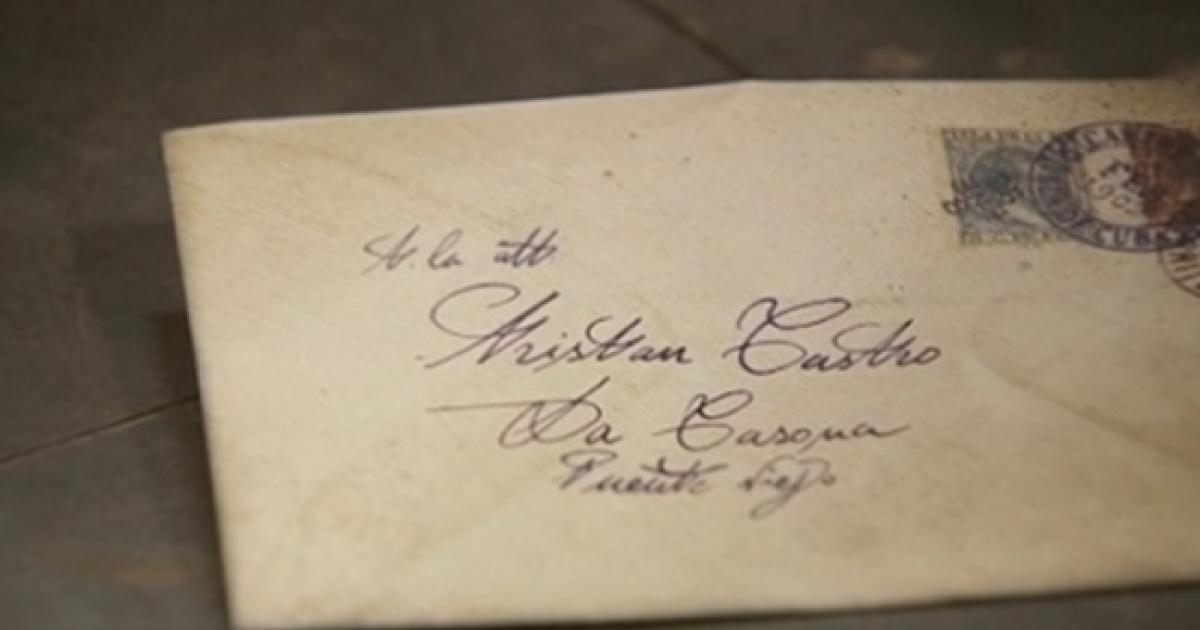 A. la att
Tristan Castro
La Casona
Puente Viejo
CUBA